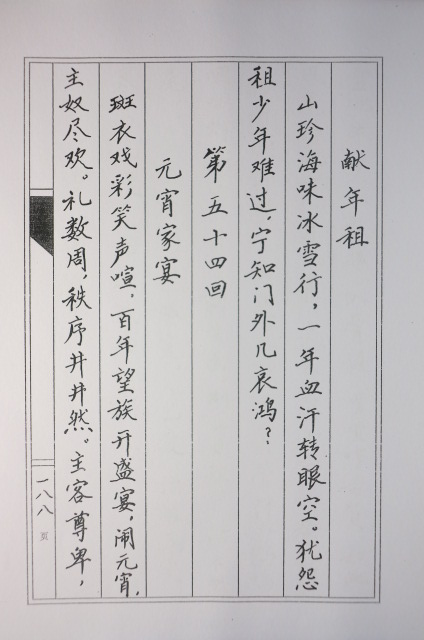 献年租
山珍海味冰雪行，一年血汗转眼空。犹怨
租少年难过，宁知门外几哀鸿？
第五十四回
元宵家宴
斑衣戏彩笑声喧，百年望族开盛宴，闹元宵，
主奴尽欢。礼数周，秩序井井然。主客尊卑，
一八八
页